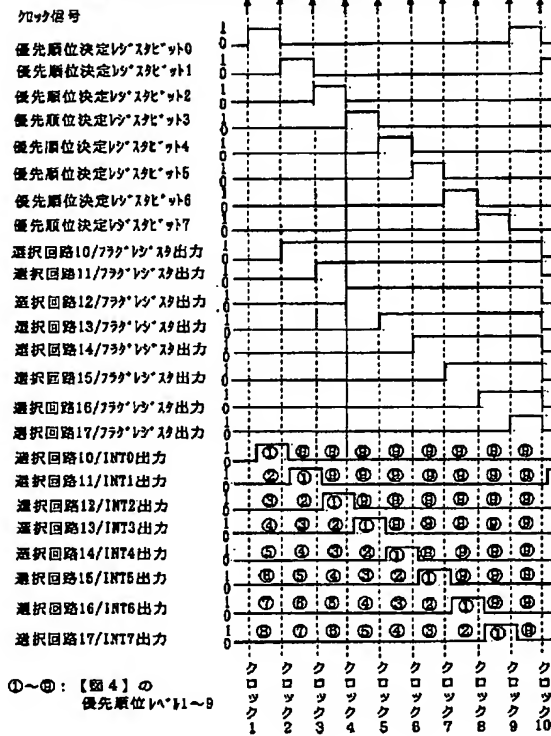 クロック信号
優先順位決定レジスタビット0
優先順位決定レジスタビット1
優先順位決定レジスタビット2
優先順位決定レジスタビット3
優先順位決定レジスタビット4
優先順位決定レジスタビット5
優先順位決定レジスタビット6
優先順位決定レジスタビット7
選択回路10/フラグレジスタ出力
選択回路11/フラグレジスタ出力
選択回路12/フラグレジスタ出力
選択回路13/フラグレジスタ出力
選択回路14/フラグレジスタ出力
選択回路15/フラグレジスタ出力
選択回路16/フラグレジスタ出力
選択回路17/フラグレジスタ出力
選択回路10/INT0出力
選択回路11/INT1出力
選択回路12/INT2出力
選択回路13/INT3出力
選択回路14/INT4出力
選択回路15/INT5出力
選択回路16/INT6出力
選択回路17/INT7出力
①~⑨:【図4】の
優先順位レベル1~9
クロック1
クロック2
クロック3
クロック4
クロック5
クロック6
クロック7
クロック8
クロック9
クロック10